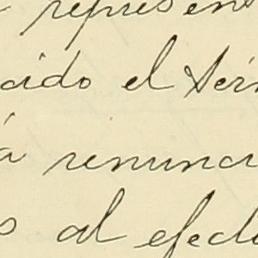 represen
cido el tér
á renunci
s al efecto